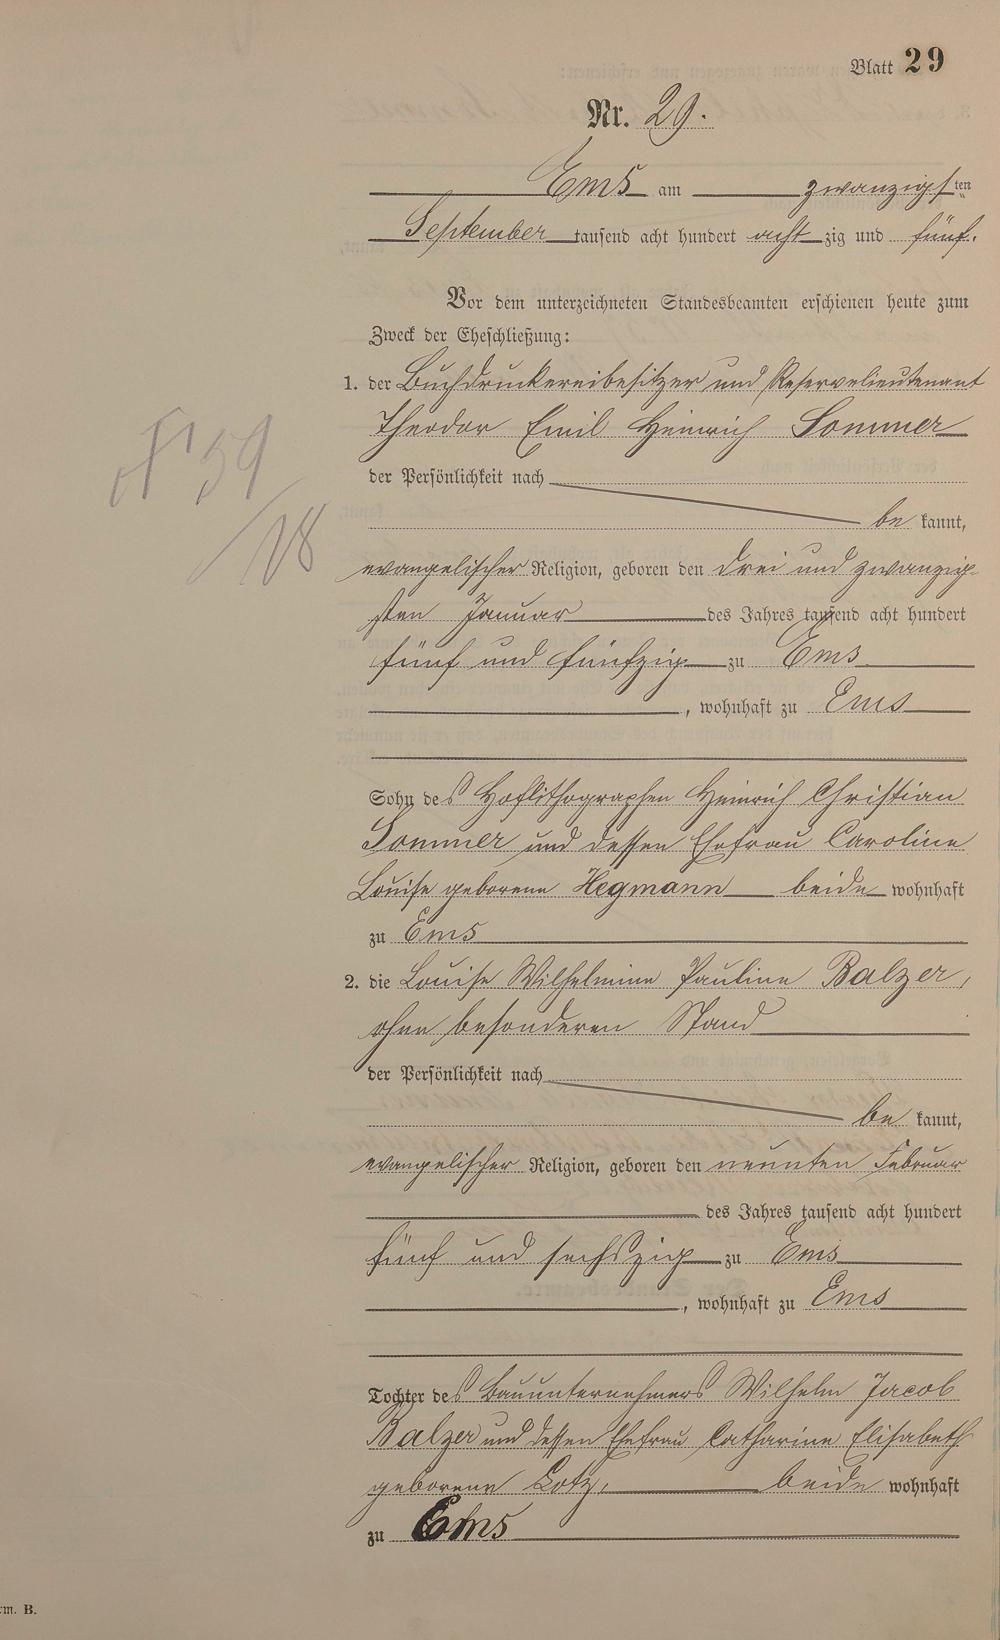 Blatt 29
Nr. 29.
Ems am zwanzigsten
September tausend acht hundert acht zig und fünf.
Vor dem unterzeichneten Standesbeamten erschienen heute zum
Zweck der Eheschließung:
1. der Buchdruckereibesitzer und Reservelieutenant
Theodor Emil Heinrich Sommer
der Persönlichkeit nach
59
/18
be kannt,
evangelischer Religion, geboren den drei und zwanzig-
sten Januar des Jahres tausend acht hundert
fünf und fünfzig zu Ems
, wohnhaft zu Ems
Sohn des Hoflithographen Heinrich Christian
Sommer und dessen Ehefrau Caroline
Louise geborene Hegmann beide wohnhaft
zu Ems
2. die Louise Wilhelmine Pauline Balzer,
ohne besonderen Stand
der Persönlichkeit nach
be kannt,
evangelischer Religion, geboren den neunten Februar
des Jahres tausend acht hundert
fünf und sechszig zu Ems
, wohnhaft zu Ems
Tochter des Bauunternehmers Wilhelm Jacob
Balzer und dessen Ehefrau Catharine Elisabeth
geborene Lotz, beide wohnhaft
zu Ems
rm. B.